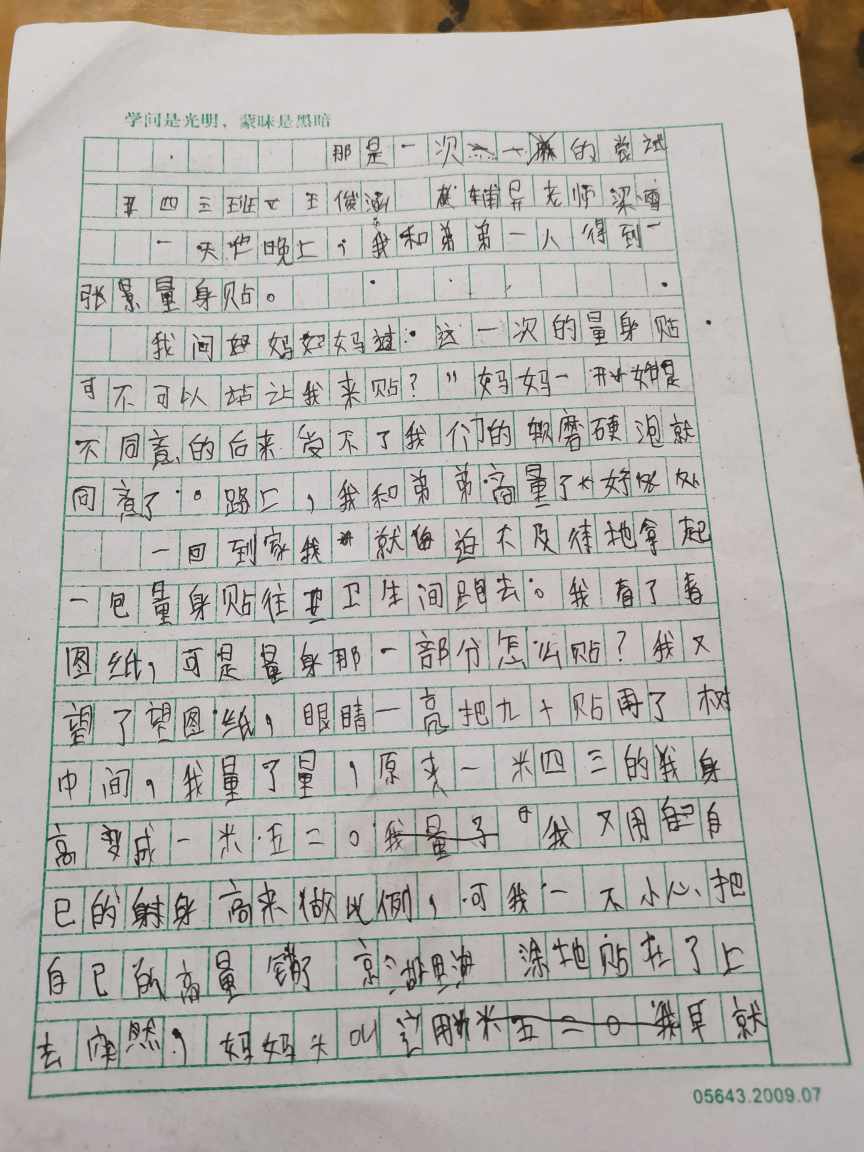 学问是光明，蒙昧是黑暗
那是一次的尝试
四三班王俊涵 辅导老师梁雪
一天晚上，我和弟弟一人得到一
张量身贴。
我问妈妈：这一次的量身贴
可不可以让我来贴？”妈妈一开始是
不同意的后来受不了我们的软磨硬泡就
同意了。路上，我和弟弟高量了好
一回到家我就迫不及待地拿起
一包量身贴往卫生间跑去。我看了看
图纸，可是量身那一部分怎么贴？我又
望了望图纸，眼睛一亮把九十贴再了树
中间，我量了量，原来一米四三的我身
高变成一米五二。我又用自
己的射身高来做比例，可我一不小心把
自己的高量错了 涂地贴在了上
去突然，妈妈大叫 早就
05643.2009.07